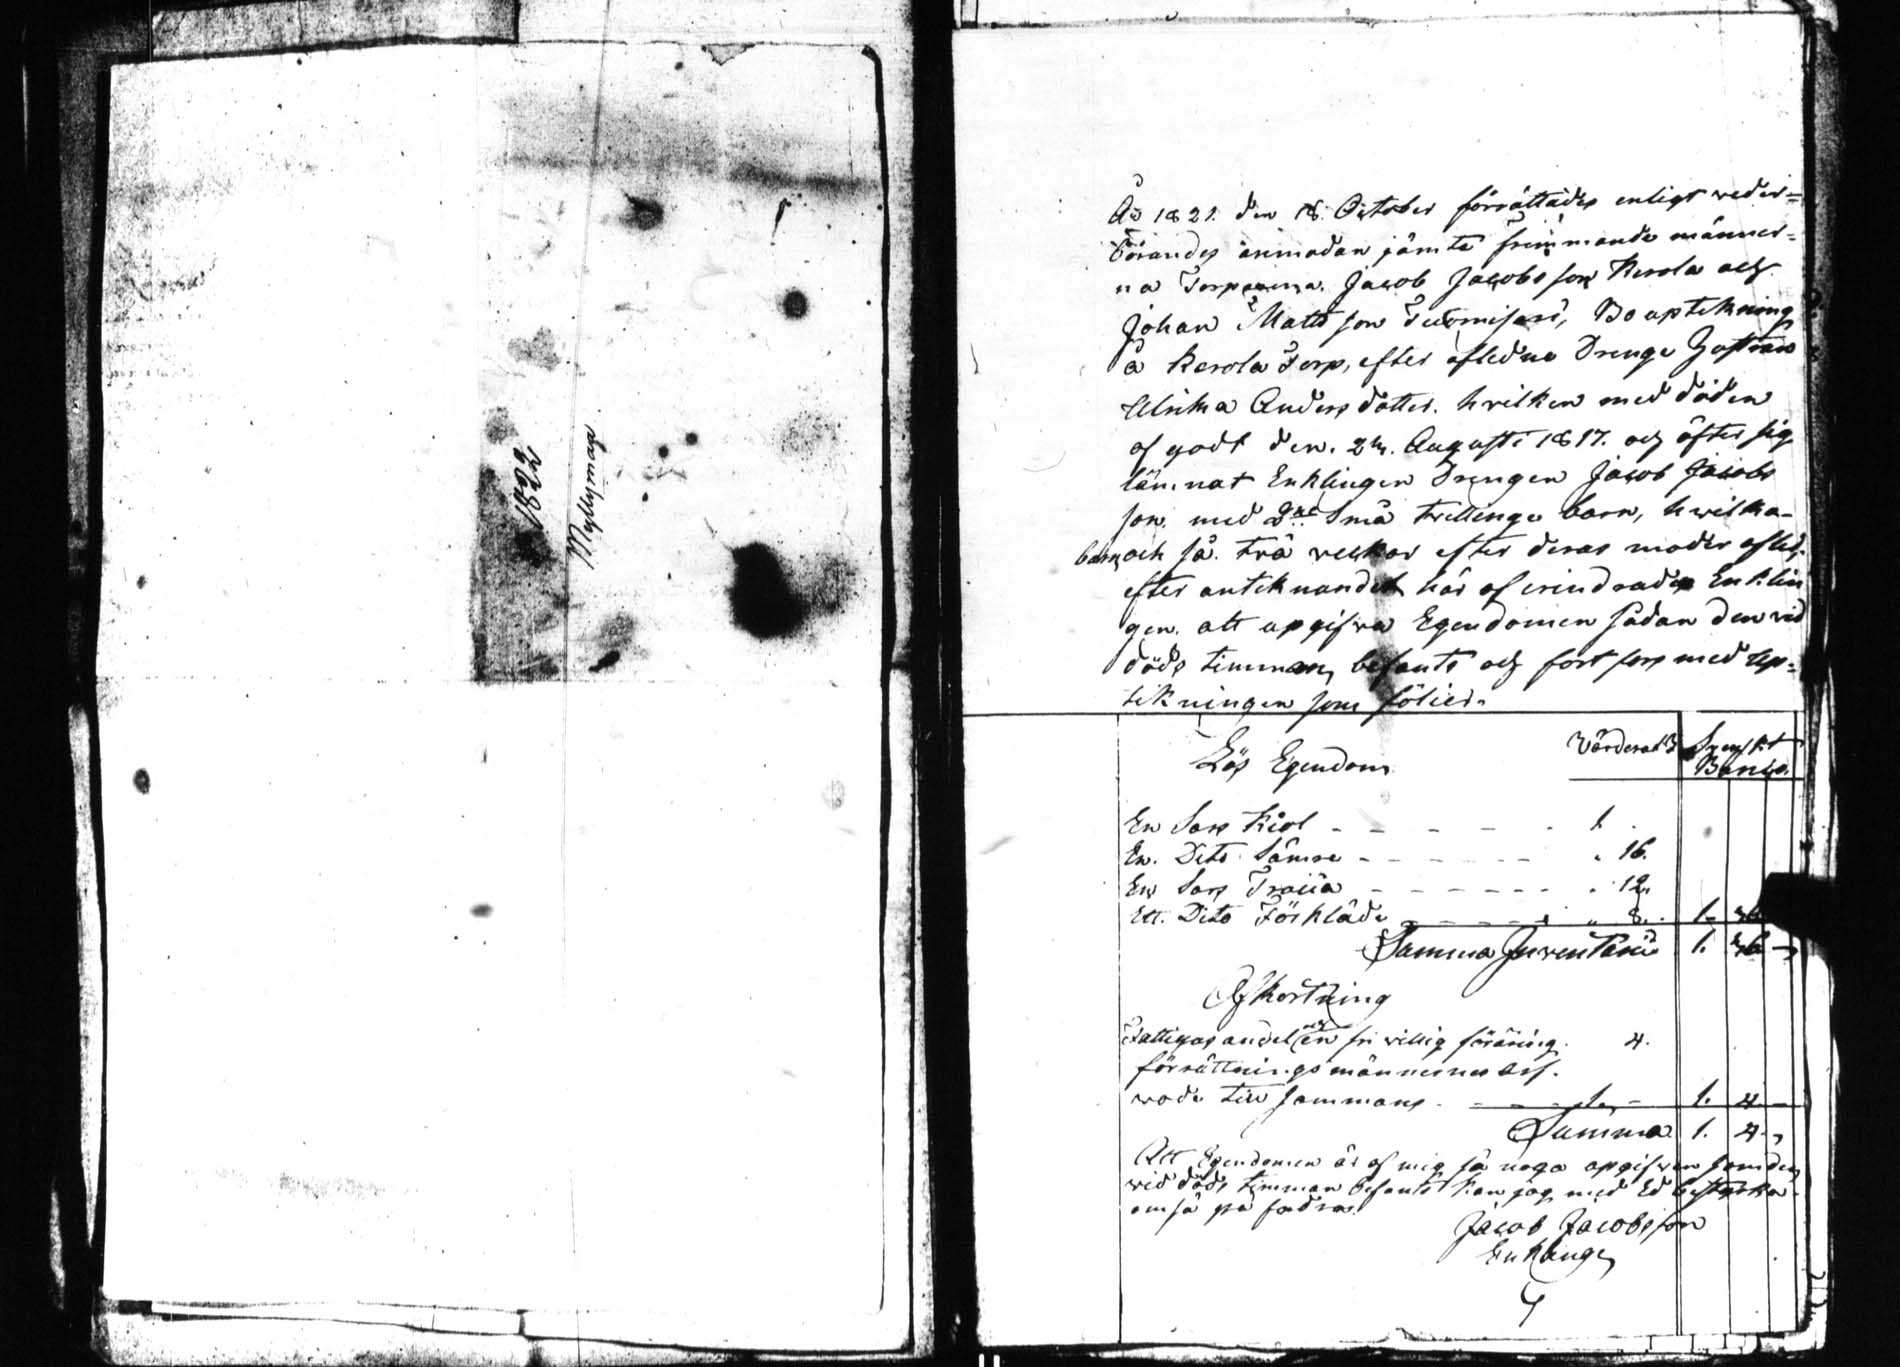 1822
Myllymaa
Åo 1821. den 18. October förrättades enligt weder=
börandes anmodan jämte frémmande männer=
na Torparena. Jacob Jacobsson Kerola och
Johan Mattsson Tuomisari, Bo uptekning
å Kerola Torp, efter afledne Drenge Hustrun
Ulrika Anders dotter. hvilken med döden
af godt den. 24. Augusti 1817. och öfter sig
lämnat Enklingen Drengen Jacob Jacobs
son. med 2ne Små twillinge barn, hwilka
barn och så. två veckor efter deras moder afled.
efter antecknandet här af erindrades Enklin
gen. att upgifva Egendomen sådan den vid
döds timman befants och fortfors med up=
tekningen som följer.
Lös Egendom Värderat Svenskt
Banco.
En Sars Kiol - - - - - 1.
En. Dito Sämre - - - - - " 16.
En Sars Tröija - - - - - " 12.
Ett. Dito Förkläde - - - - - " 8. 1. 36
Summa Inventarii 1. 36 -
Afkortning
Fattigas andel en fri villig föräring. 4.
förrättnings männernes arf.
wode till sammans - - - 1. - 1. 4. -
Summa 1. 4. -
Att Egendomen är af mig så noga opgifwen som den
vid döds timman befants kan jag med Ed bestyrka
om så på fodras.
Jacob Jacobsson
Enklinge